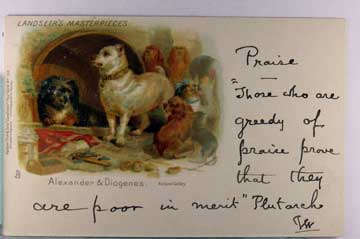 LANDSEER'S MASTERPIECES.
Praise
"Those who are
greedy of
praise prove
that they
are poor in merit" Plutarch
Alexander & Diogenes.
National Gallery